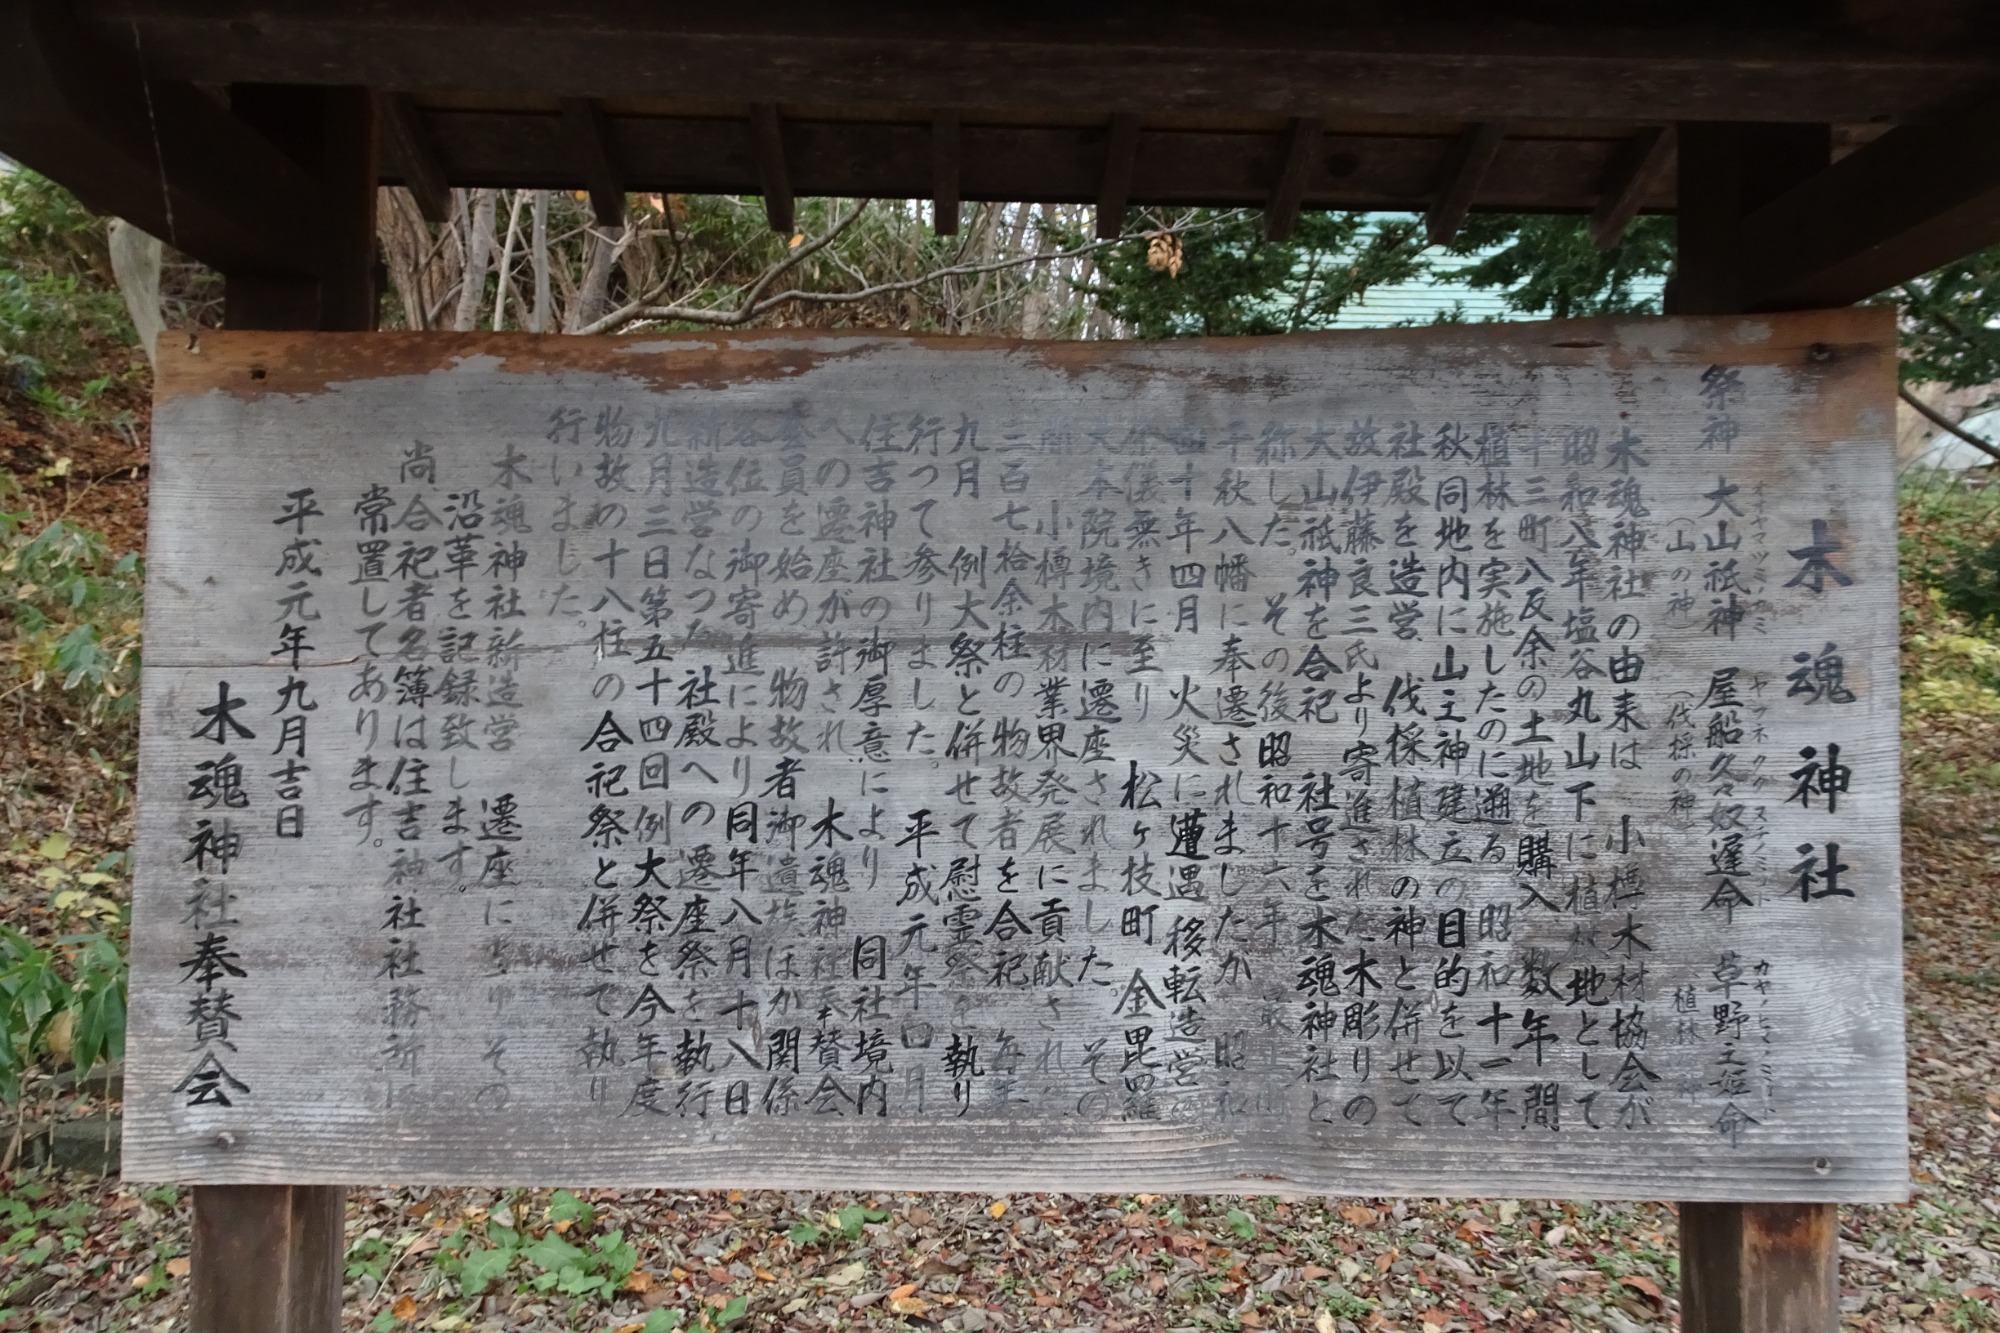 木魂神社
祭神 大山祇神 屋船久々奴遅命 草野主姫命
オオヤマツミノカミ ヤフネククヌチノミコト カヤノヒメノミコト
(山の神) (伐採の神) (植林の神)
木魂神社の由来は 小樽木材協会が
昭和八年塩谷丸山下に植林地として
十三町八反余の土地を購入 数年間
植林を実施したのに遡る 昭和十一年
秋同地内に山主神建立の目的を以て
社殿を造営、伐採植林の神と併せて
故伊藤良三氏より寄進された木彫りの
大山祇神を合祀 社号を木魂神社と
称した。その後昭和十六年 最上町
千秋八幡に奉遷されましたが 昭和
四十年四月 火災に遭遇 移転造営の
余儀無きに至り 松ヶ枝町 金毘羅
大本院境内に遷座されました。その
間 小樽木材業界発展に貢献された
三百七拾余柱の物故者を合祀 毎年
九月 例大祭と併せて慰霊祭を執り
行って参りました。 平成元年四月
住吉神社の御厚意により 同社境内
への遷座が許され、木魂神社奉賛会
委員を始め、物故者御遺族ほか関係
各位の御寄進により同年八月十八日
新造営なった 社殿への遷座祭を執行
九月三日第五十四回例大祭を今年度
物故の十八柱の合祀祭と併せて執り
行いました。
木魂神社新造営 遷座に当り その
沿革を記録致します。
尚、合祀者名簿は住吉神社社務所に
常置してあります。
平成元年九月吉日
木魂神社奉賛会